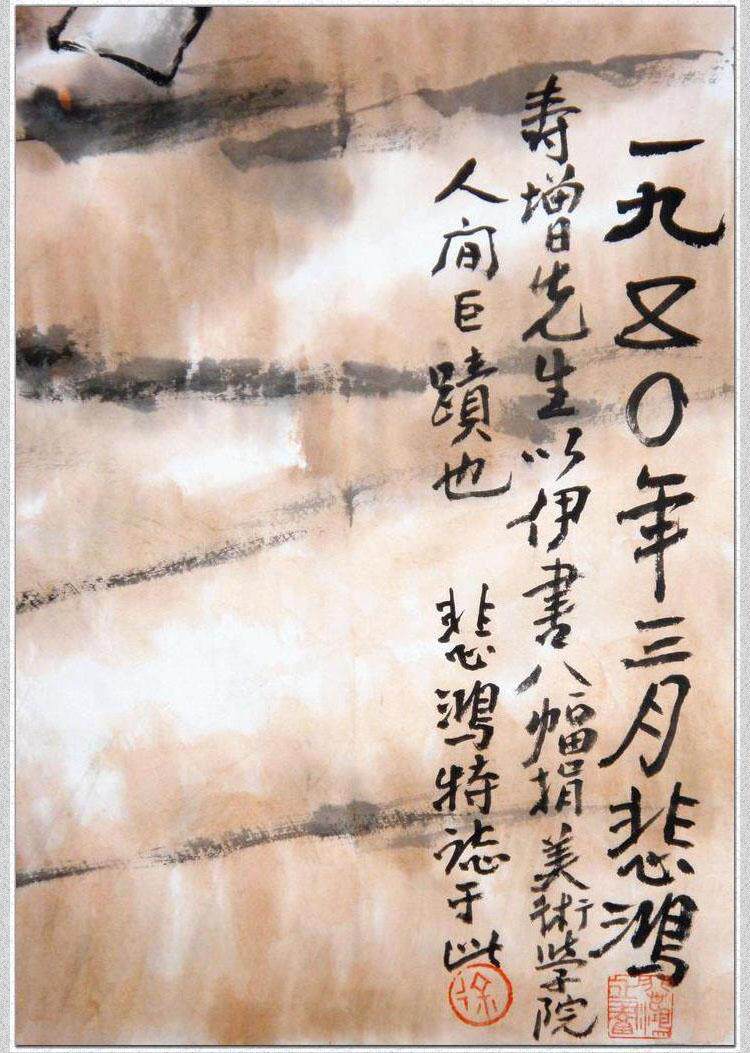 一九五〇年三月悲鴻
寿增先生以伊書八幅捐美術學院
人间巨蹟也
悲鴻特誌于此
徐